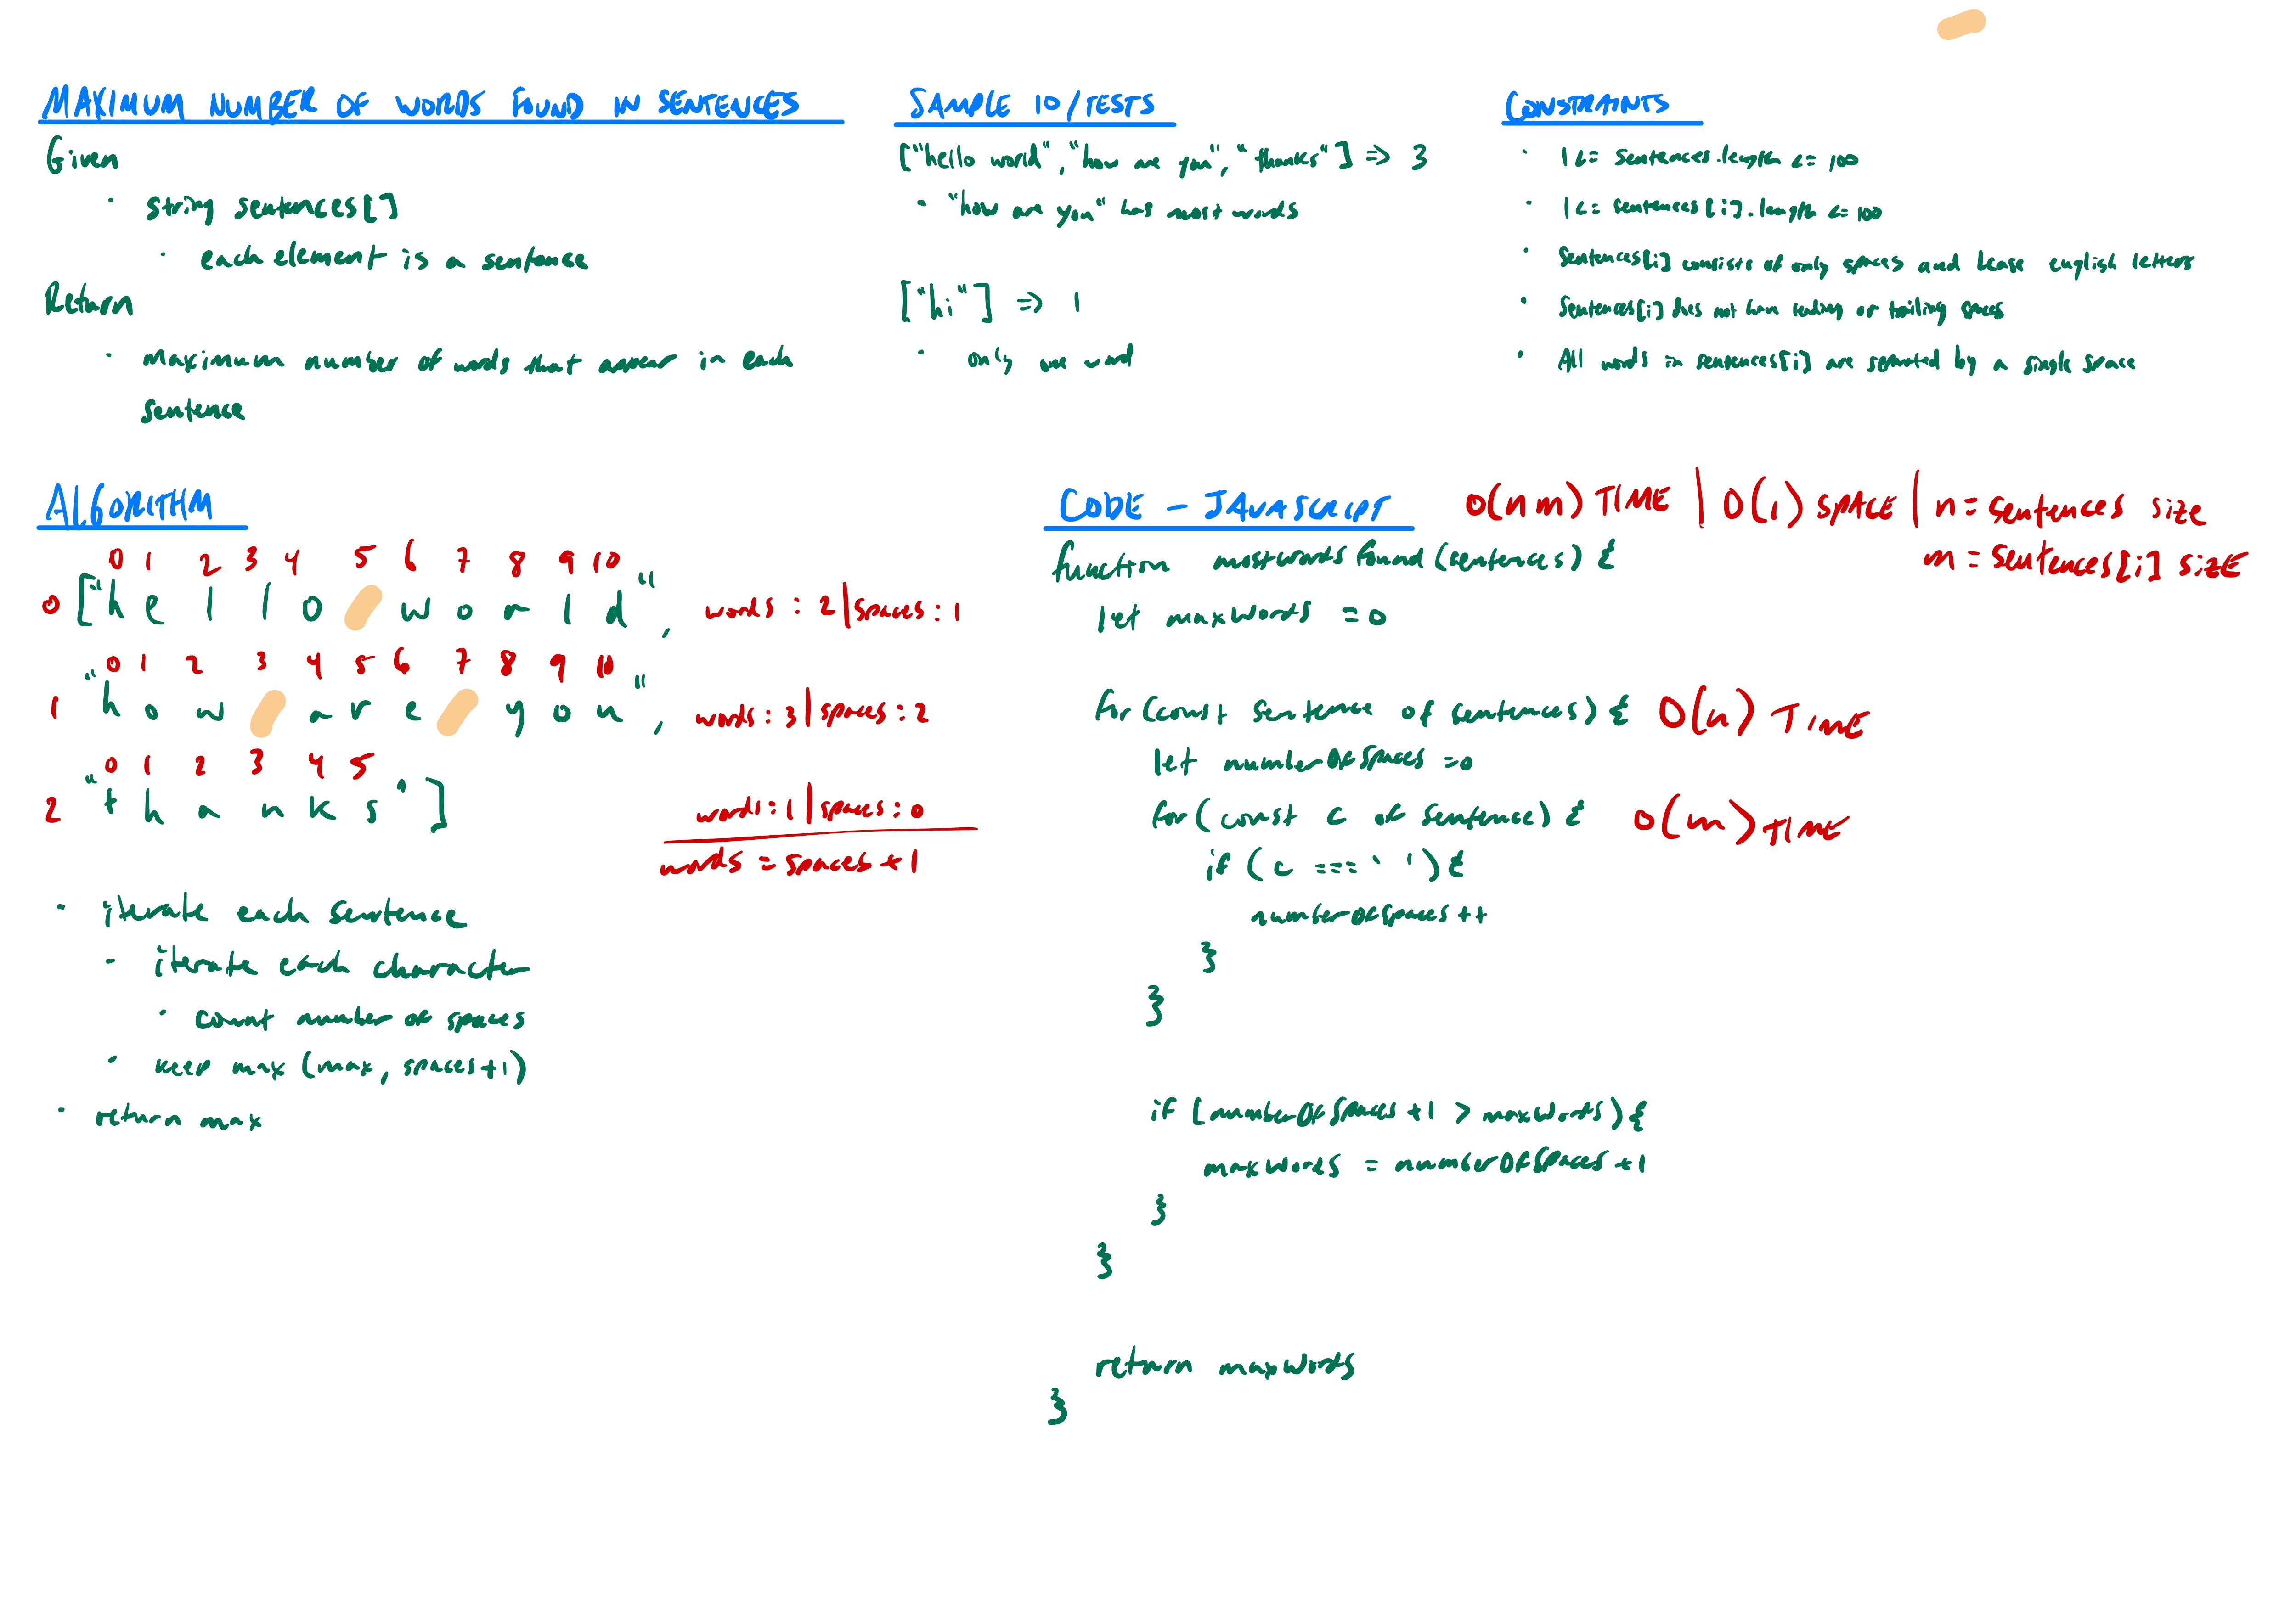 MAXIMUM NUMBER OF WORDS FOUND IN SENTENCES
Given
· string sentences[]
· each element is a sentence
Return
· maximum number of words that appear in each
sentence
SAMPLE IO/TESTS
["hello world", "how are you", "thanks"] => 3
· "how are you" has most words
["hi"] => 1
· only one word
CONSTRAINTS
· 1 <= sentences.length <= 100
· 1 <= sentences[i].length <= 100
· Sentences[i] consists of only spaces and lcase english letters
· Sentences[i] does not have leading or trailing spaces
· All words in sentences[i] are separated by a single space
ALGORITHM
0 1 2 3 4 5 6 7 8 9 10
0 ["hello world", words : 2 | spaces : 1
0 1 2 3 4 5 6 7 8 9 10
1 "how are you", words : 3 | spaces : 2
0 1 2 3 4 5
2 "thanks"] words : 1 | spaces : 0
words = spaces + 1
· iterate each sentence
- iterate each character
· count number of spaces
· keep max (max, spaces+1)
· return max
CODE - JAVASCRIPT O(nm) TIME | O(1) SPACE | n = sentences size
m = sentences[i] size
function mostWordsFound (sentences) {
let maxWords = 0
for (const sentence of sentences) { O(n) TIME
let numberOfSpaces = 0
for (const c of sentence) { O(m) TIME
if (c === ' ') {
numberOfSpaces ++
}
}
if (numberOfSpaces +1 > maxWords) {
maxWords = numberOfSpaces +1
}
}
return maxWords
}